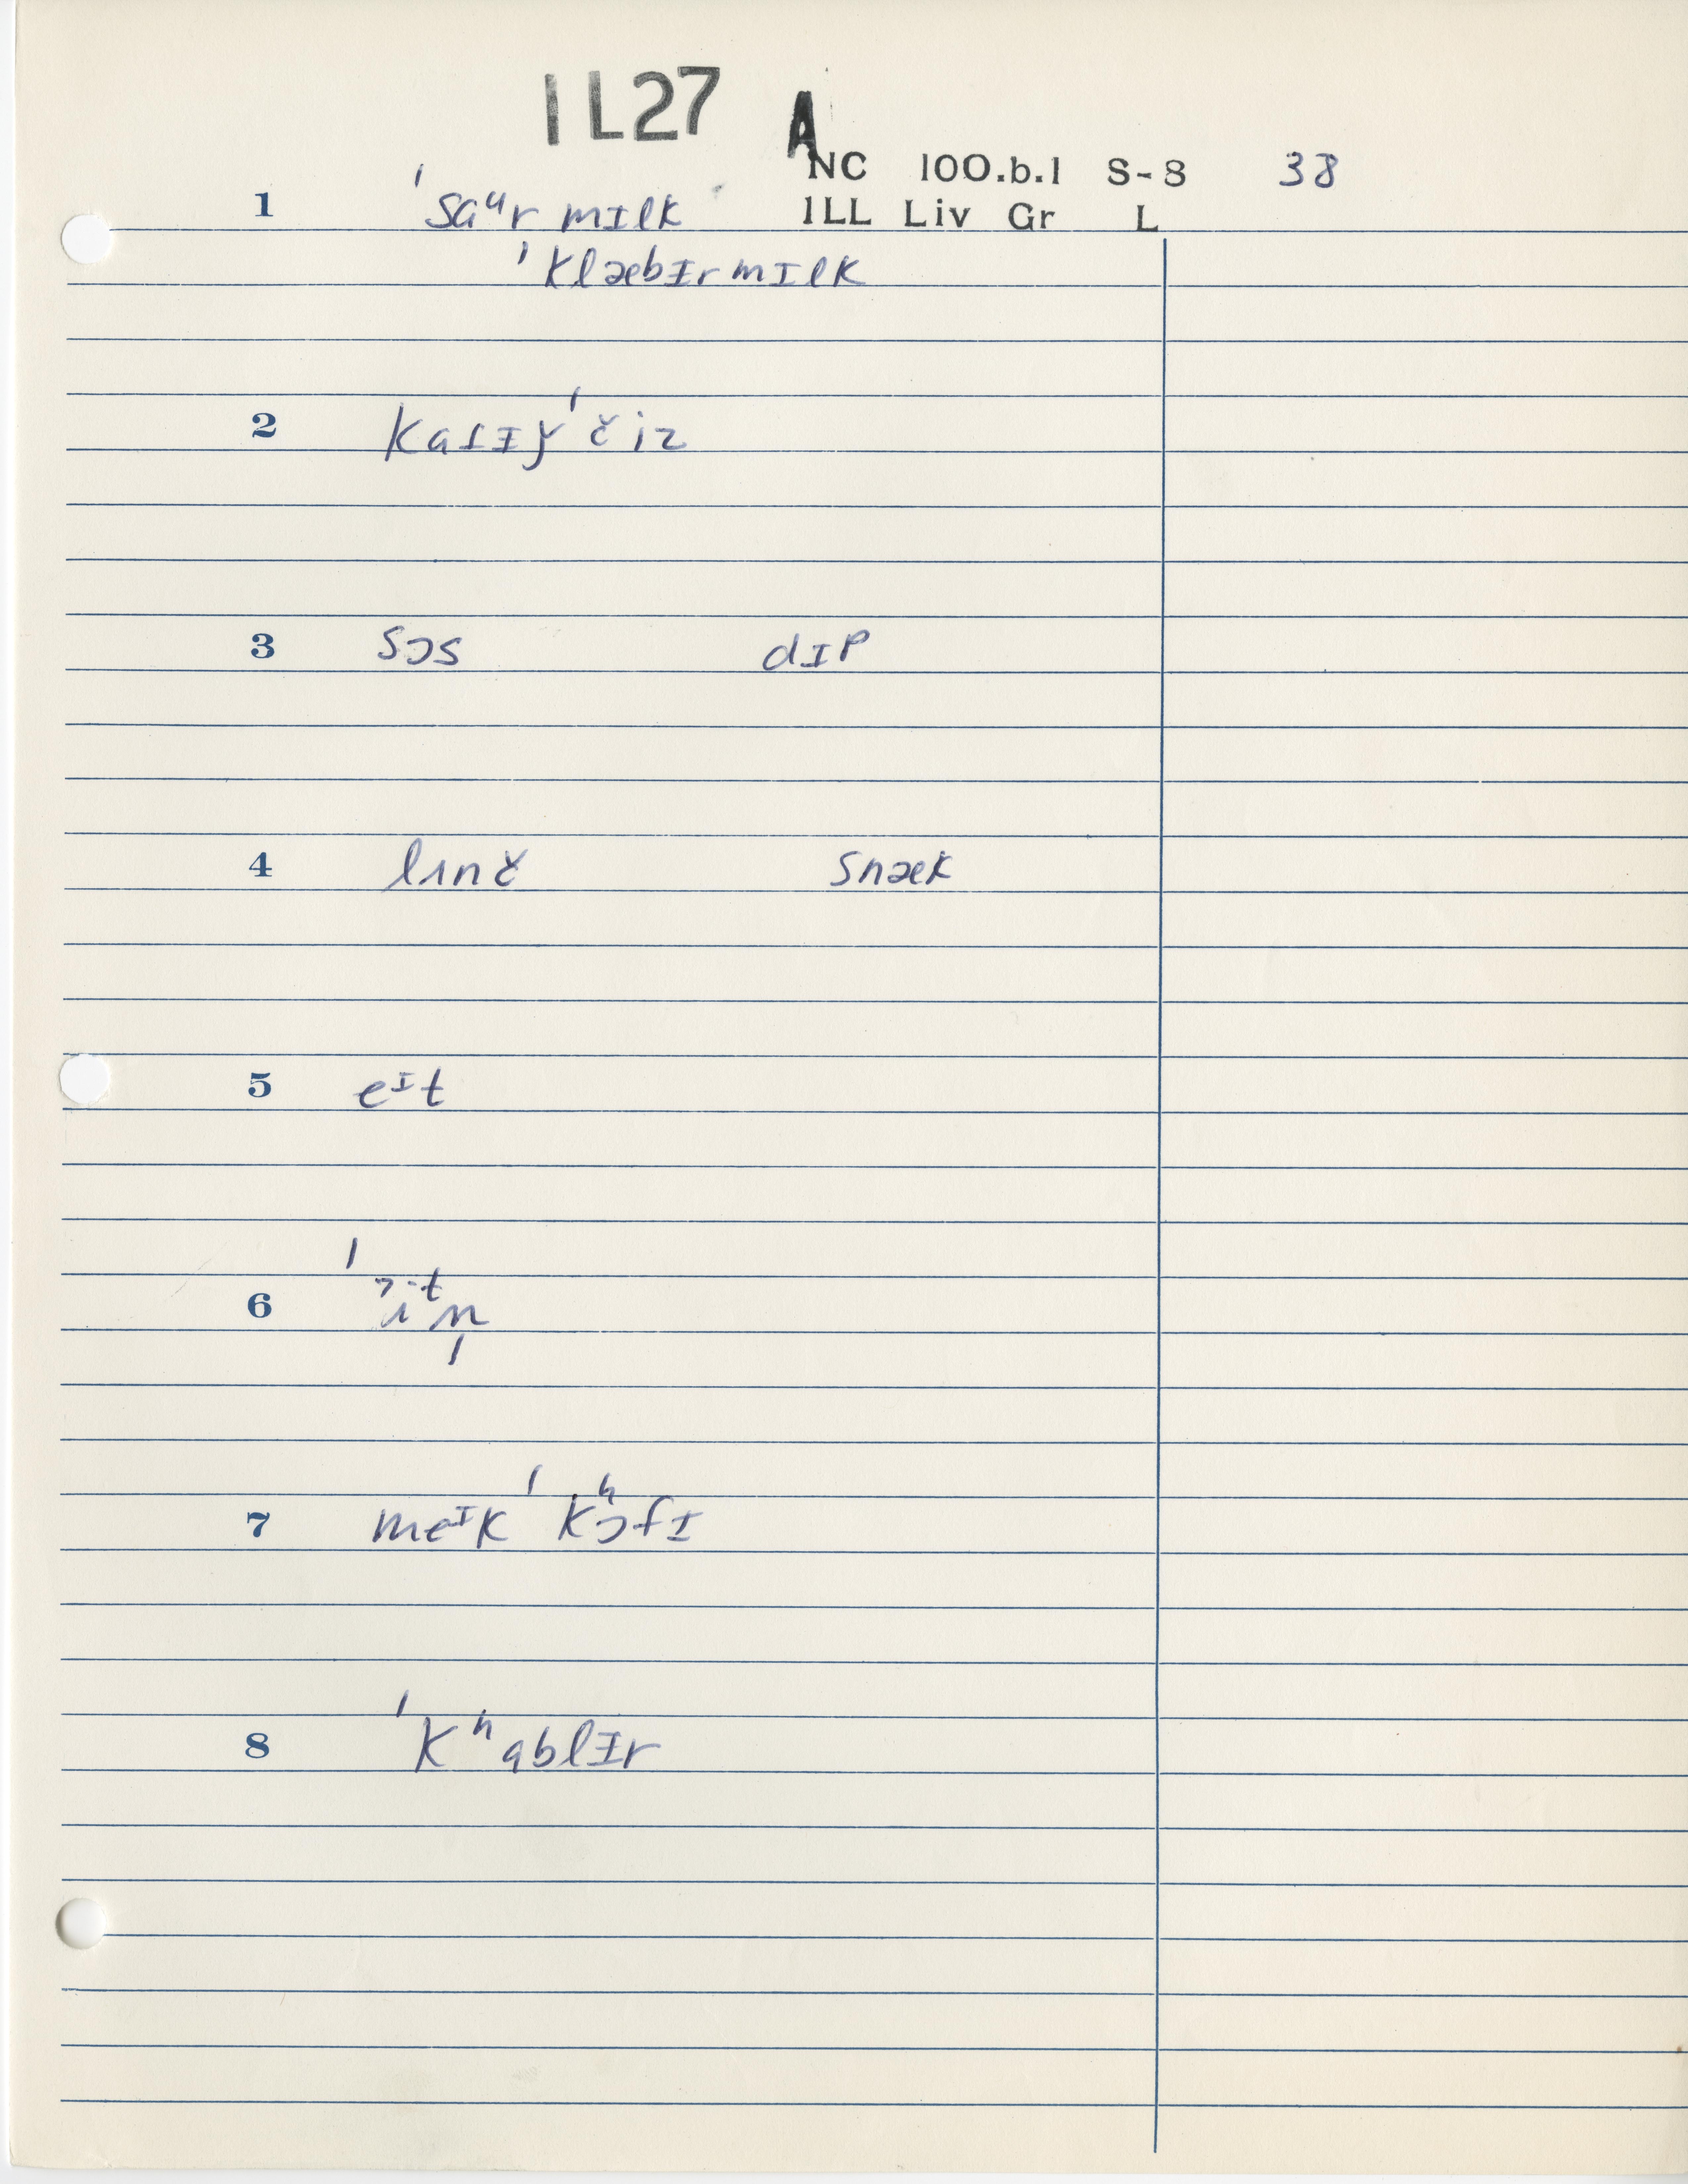 IL27 A
NC 100.b.1 S-8 38
ILL Liv Gr L
1 ˈsɑᵘr mɪlk
ˈklæbɨrmɪlk
2 kɑtɪǰ ˈčiz
3 sɔs dɪp
4 lʌnč snæk
5 eᴵt
6
7 meᴵk ˈkʰɔfɪ
8 ˈkʰɑblɨr